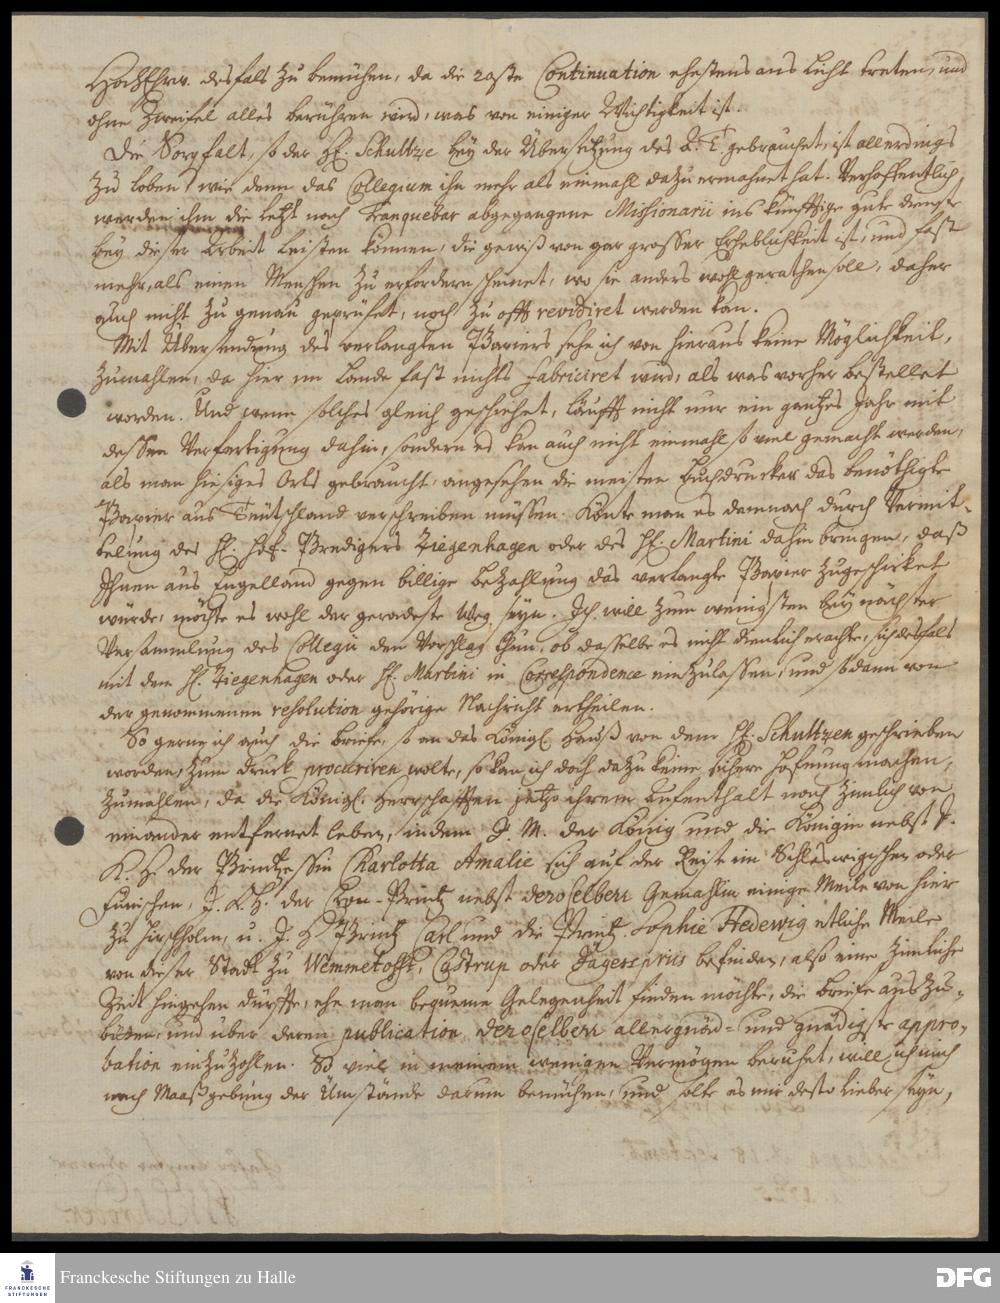 HochEhrw. desfals zu bemühen, da die 20ste Continuation ehestens ans Licht treten, und
ohne Zweifel alles berühren wird, was von einiger Wichtigkeit ist.
Die Sorgfalt, so der H. Schultze bey der Übersetzung des A. T. gebrauchet, ist allerdings
zu loben, wie denn das Collegium ihn mehr als einmahl dazu ermahnet hat. Verhoffentlich
werden ihm die letzt nach Tranquebar abgegangene Missionarii ins künfftige gute dienste
bey dieser Arbeit leisten können, die gewiß von gar grosser Erheblichkeit ist, und fast
mehr, als einen Menschen zu erfordern scheinet, wo sie anders wohl gerathen soll, daher
auch nicht zu genau geprüfet, noch zu offt revidiret werden kan.
Mit Übersendung des verlangten Papiers sehe ich von hieraus keine Möglichkeit,
zumahlen, da hier im Lande fast nichts fabriciret wird, als was vorher bestellet
worden. Und wenn solches gleich geschiehet, läufft nicht nur ein gantzes Jahr mit
dessen Verfertigung dahin, sondern es kan auch nicht einmahl so viel gemacht werden,
als man hiesiges Orts gebraucht, angesehen die meisten Buchdrucker das benöthigte
Papier aus Teütschland verschreiben müssen. Könte man es demnach durch Vermit-
telung des H. Hof-Predigers Ziegenhagen oder des H. Martini dahin bringen, daß
Ihnen aus Engelland gegen billige bezahlung das verlangte Papier zugeschicket
würde, möchte es wohl der geradeste Weg seyn. Ich will zum wenigsten bey nächster
Versammlung des Collegii den Vorschlag thun, ob dasselbe es nicht dienlich erachte, sich desfals
mit dem H. Ziegenhagen oder H. Martini in Correspondence einzulassen, und sodann von
der genommenen resolution gehörige Nachricht ertheilen.
So gerne ich auch die briefe, so an das Königl. Hauß von dem H. Schultzen geschrieben
worden, zum druck procuriren wolte, so kan ich doch dazu keine sichere Hofnung machen,
zumahlen, da die Königl. Herrschafften jetzo ihrem Aufenthalt nach zimlich von
einander entfernet leben, indem I. M. der König und die Königin nebst I.
K. H. der Printzessin Charlotta Amalie sich auf der Reise im Schleswigischen oder
Fünischen, I. K. H. der Cron-Printz nebst deroselben Gemahlin einige Meile von hier
zu Hirschholm, u. I. H. Printz Carl und die Printz. Sophie Hedewig etliche Meile
von dieser Stadt zu Wemmetofft, Castrup oder Jägerspriis befinden, also eine zimliche
Zeit hingehen dürffte, ehe man bequeme Gelegenheit finden möchte, die briefe auszu-
bitten, und über deren publication deroselben allergnäd- und gnädigste appro-
bation einzuhohlen. So viel in meinem wenigen Vermögen beruhet, will ich mich
nach Maaßgebung der Umstände darum bemühen, und solte es mir desto lieber seyn,
Franckesche Stiftungen zu Halle
FRANCKESCHE
STIFTUNGEN
DFG